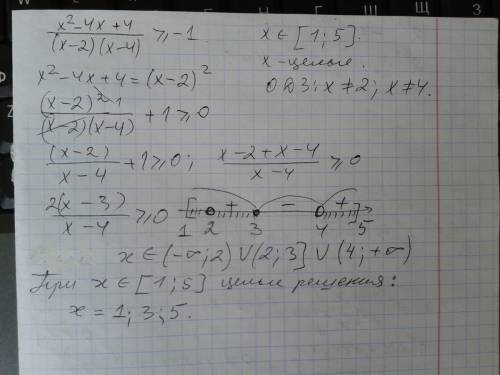 (x²-4x+4)/((x-2)(x-4)) ≥ -1    x ∈ [1; 5].
x - целые.
x²-4x+4 = (x-2)²    ОДЗ: x ≠ 2; x ≠ 4.
(x-2)²/((x-2)(x-4)) + 1 ≥ 0
(x-2)/(x-4) + 1 ≥ 0; (x-2+x-4)/(x-4) ≥ 0
2(x-3)/(x-4) ≥ 0    + - +
1 2 3 4 5
x ∈ (-∞; 2) ∪ (2; 3] ∪ (4; +∞)
При x ∈ [1; 5] целые решения:
x = 1; 3; 5.